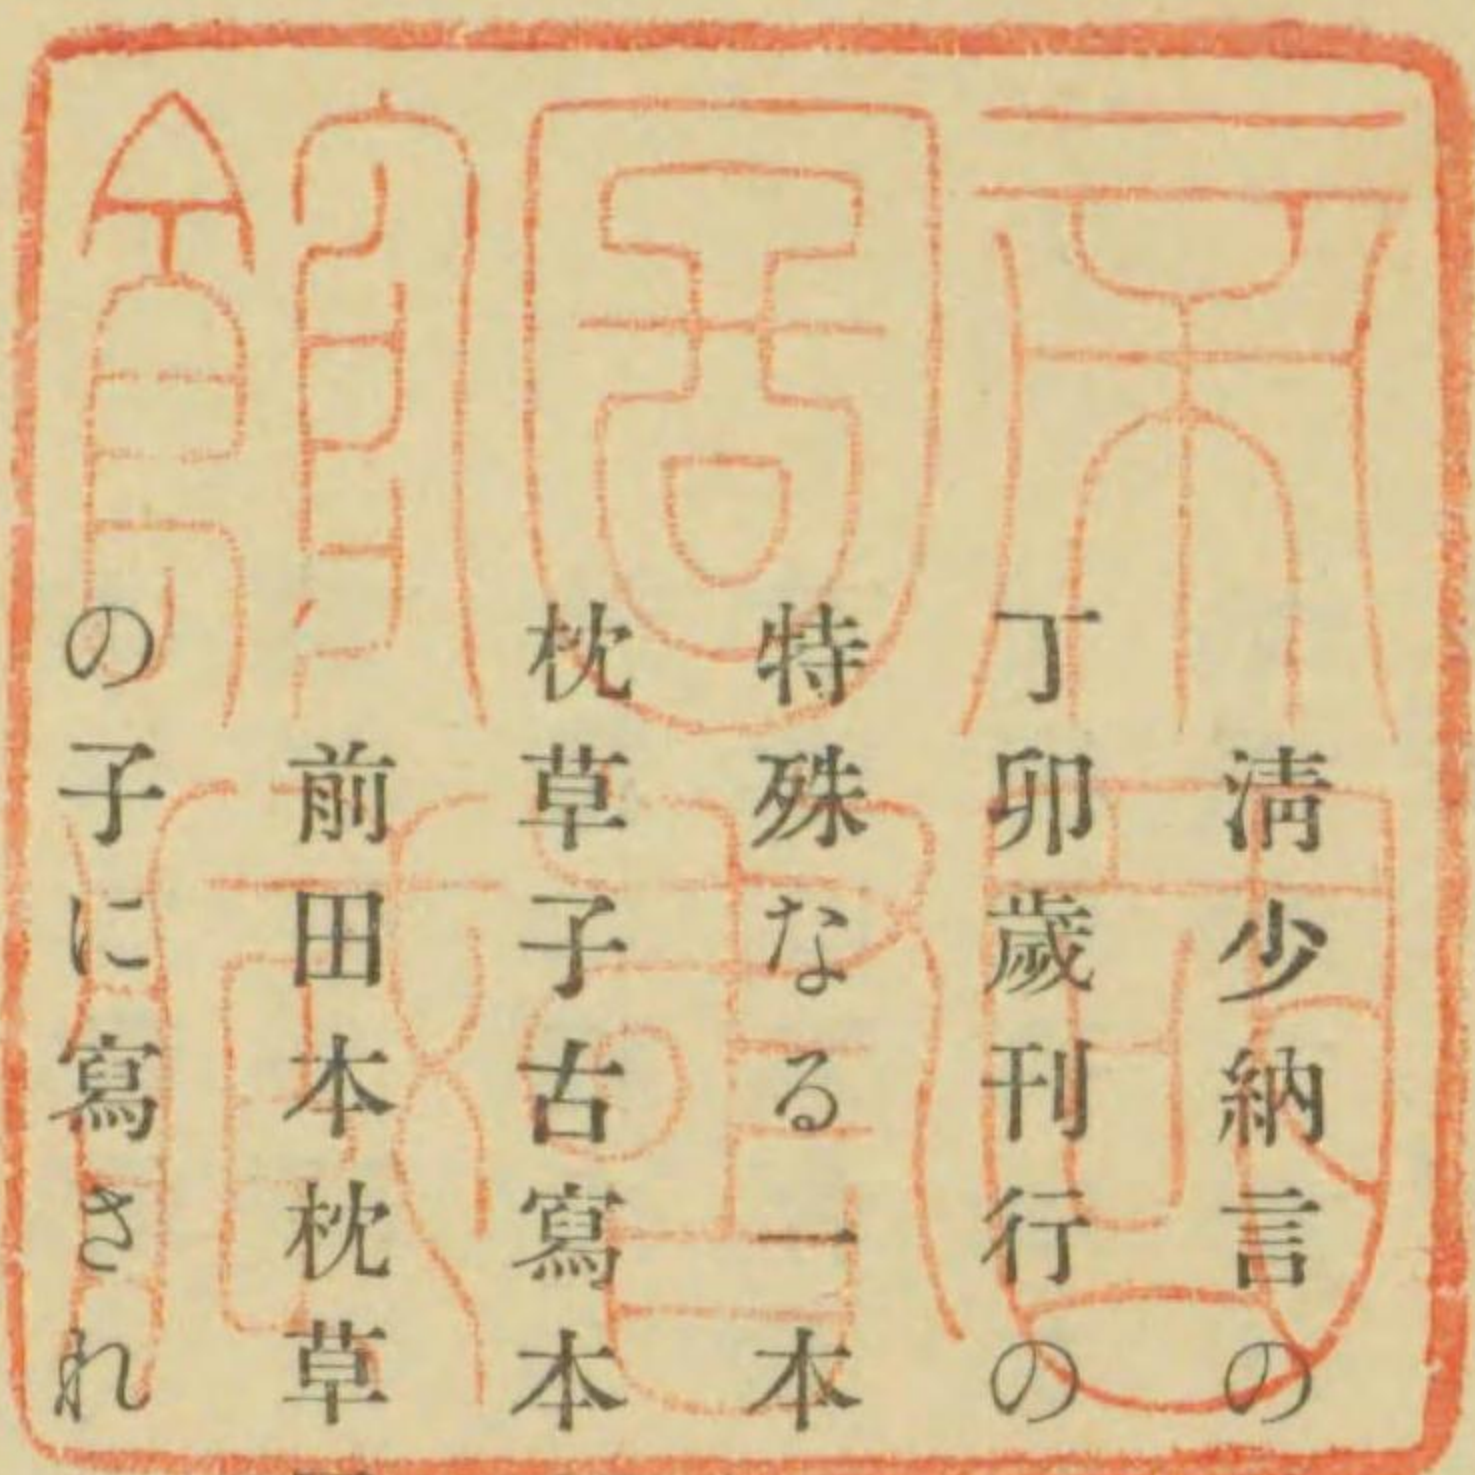 帝國圖書館藏
淸少納言の
丁卯歲刊行の
特殊なる一本
枕草子古寫本
前田本枕草
の子に寫され